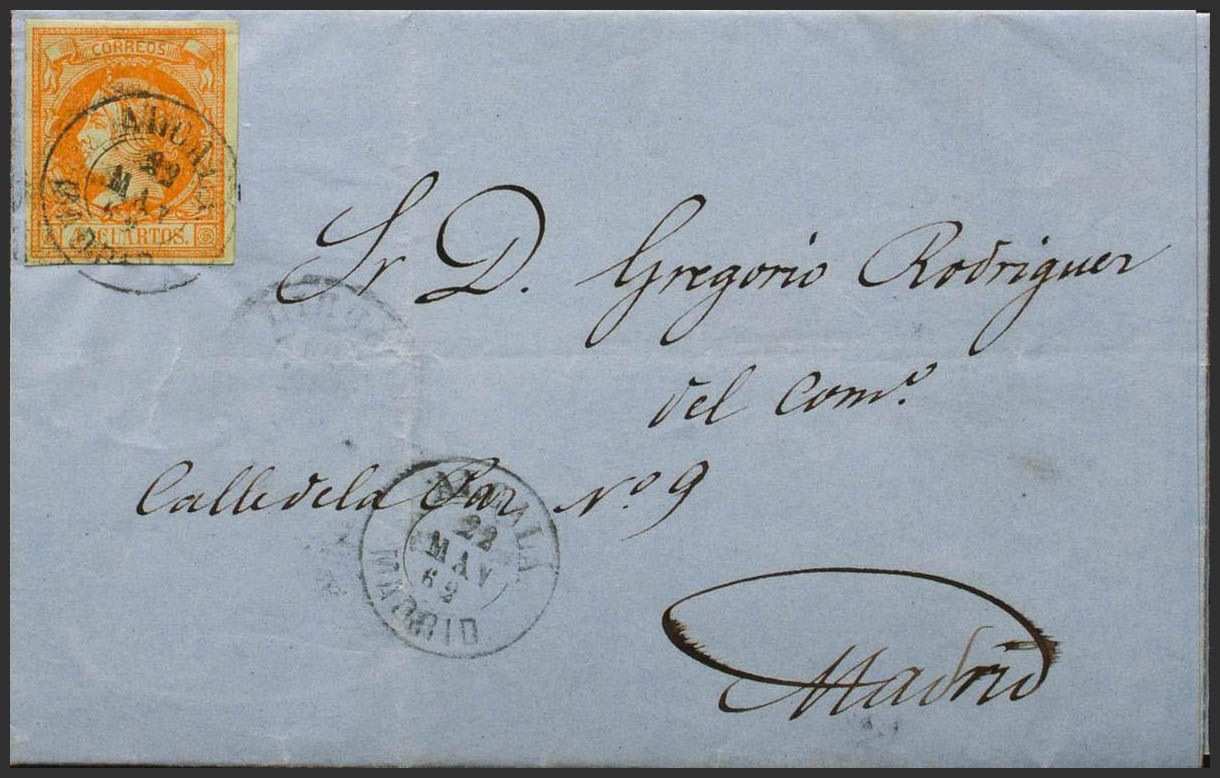 CORREOS
4 CUARTOS.
ALCALA
22
MAY
62
MADRID
Sr D. Gregorio Rodriguez
del Comº.
Calle de la Paz Nº 9
ALCALA
22
MAY
62
MADRID
Madrid